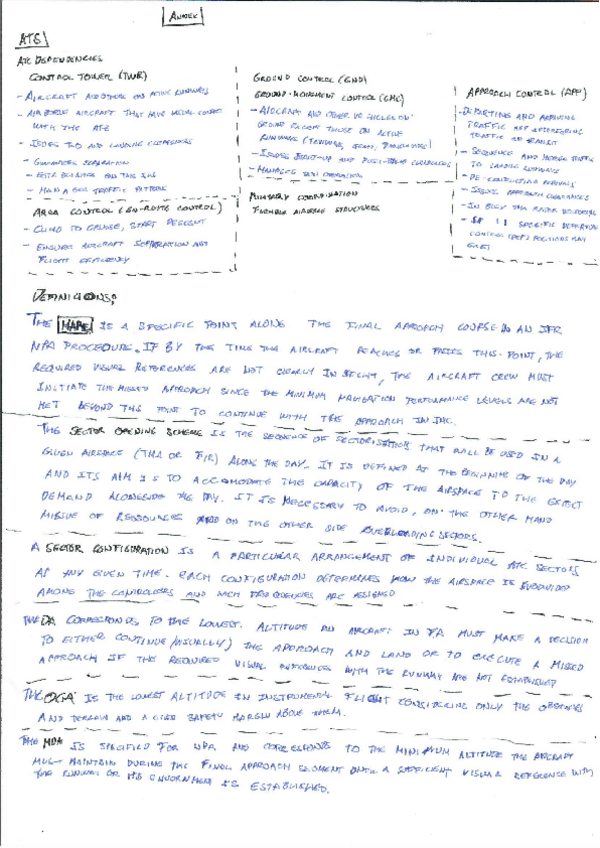 ANNEX
ATS
ATC DEPENDENCIES
CONTROL TOWER (TWR)
- AIRCRAFT AND OTHER ON ACTIVE RUNWAYS
- AIRBORNE AIRCRAFT THAT HAVE VISUAL CONTACT
WITH THE ATC
- ISSUES T/O AND LANDING CLEARANCES
- GUARANTEES SEPARATION
- ESTABLISHED ON THE ILS
- TRAFFIC PATTERN
AREA CONTROL (EN-ROUTE CONTROL)
- CLIMB TO CRUISE, START DESCENT
- ENSURES AIRCRAFT SEPARATION AND
FLIGHT EFFICIENCY
GROUND CONTROL (GND)
GROUND MOVEMENT CONTROL (GMC)
- AIRCRAFT AND OTHER VEHICLES ON
GROUND EXCEPT THOSE ON ACTIVE
RUNWAY (TAXIWAYS,
- ISSUES START-UP AND PUSH-BACK CLEARANCES
- MANAGES TAXI OPERATION
MILITARY COORDINATION
AIRSPACE STRUCTURES
APPROACH CONTROL (APP)
- DEPARTING AND ARRIVING
TRAFFIC
TRAFFIC IN TRANSIT
- SEQUENCE AND MERGE TRAFFIC
TO LANDING RUNWAYS
- ISSUES APPROACH CLEARANCES
- IN
- IF SPECIFIC DEPARTURE
CONTROL (DEP) POSITIONS MAY
EXIST
DEFINICIONS:
THE MAPt IS A SPECIFIC POINT ALONG THE FINAL APPROACH COURSE IN AN IFR
NPA PROCEDURE. IF BY THE TIME THE AIRCRAFT REACHES OR PASSES THIS POINT, THE
REQUIRED VISUAL REFERENCES ARE NOT CLEARLY IN SIGHT, THE AIRCRAFT CREW MUST
INITIATE THE MISSED APPROACH SINCE THE MINIMUM NAVIGATION PERFORMANCE LEVELS ARE NOT
MET BEYOND THIS POINT TO CONTINUE WITH THE APPROACH IN IMC.
THE SECTOR OPENING SCHEME IS THE SEQUENCE OF SECTORISATIONS THAT WILL BE USED IN A
GIVEN AIRSPACE (TMA OR FIR) ALONG THE DAY. IT IS DEFINED AT THE BEGINNING OF THE DAY
AND ITS AIM IS TO ACCOMMODATE THE CAPACITY OF THE AIRSPACE TO THE EXPECT
DEMAND ALONGSIDE THE DAY. IT IS NECESSARY TO AVOID, ON THE OTHER HAND
MISUSE OF RESSOURCES AND ON THE OTHER SIDE OVERLOADING SECTORS.
A SECTOR CONFIGURATION IS A PARTICULAR ARRANGEMENT OF INDIVIDUAL ATC SECTORS
AT ANY GIVEN TIME. EACH CONFIGURATION DETERMINES HOW THE AIRSPACE IS SUBDIVIDED
AMONG THE CONTROLLERS AND WICH FREQUENCIES ARE ASSIGNED
THE DA CORRESPONDS TO THE LOWEST ALTITUDE AN AIRCRAFT IN PA MUST MAKE A DECISION
TO EITHER CONTINUE (VISUALLY) THE APPROACH AND LAND OR TO EXECUTE A MISSED
APPROACH IF THE REQUIRED VISUAL REFERENCES WITH THE RUNWAY ARE NOT ESTABLISHED
THE OCA IS THE LOWEST ALTITUDE IN INSTRUMENTAL FLIGHT CONSIDERING ONLY THE OBSTACLES
AND TERRAIN AND A GIVEN SAFETY MARGIN ABOVE THEM.
THE MDA IS SPECIFIED FOR NPA AND CORRESPONDS TO THE MINIMUM ALTITUDE THE AIRCRAFT
MUST MAINTAIN DURING THE FINAL APPROACH SEGMENT UNTIL A SUFFICIENT VISUAL REFERENCE WITH
THE RUNWAY OR ITS ENVIRONMENT IS ESTABLISHED.